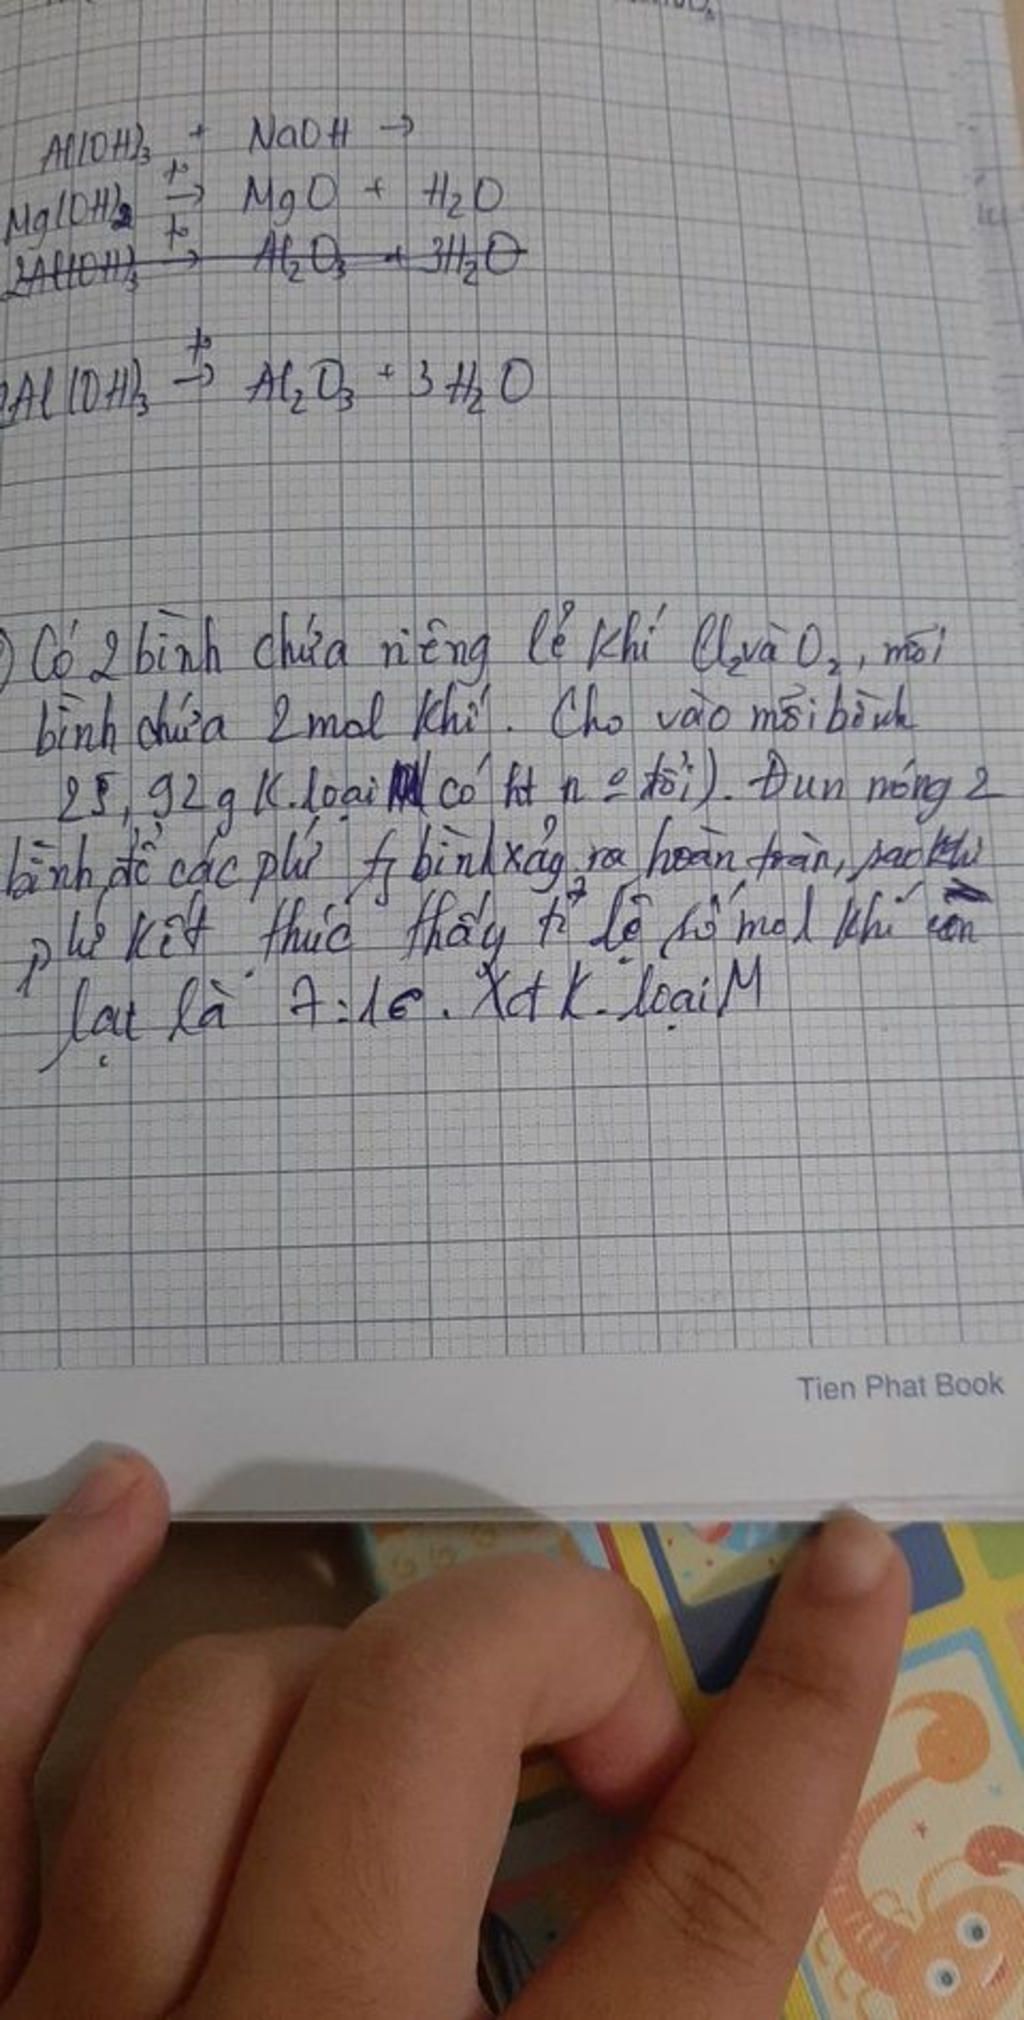 Al(OH)₃ + NaOH →
Mg(OH)₂ t° → MgO + H₂O
2Al(OH)₃ t° → Al₂O₃ + 3H₂O
2Al(OH)₃ t° → Al₂O₃ + 3H₂O
) Có 2 bình chứa riêng lẻ khí Cl₂ và O₂, mỗi
bình chứa 2 mol khí. Cho vào mỗi bình
25,92g K.loại M (có ht n = đổi). Đun nóng 2
bình để các phứ bình xảy ra hoàn toàn, sao khi
phứ kết thúc thấy tỉ lệ số mol khí còn
lại là 7:16. Xđ K.loại M
Tien Phat Book